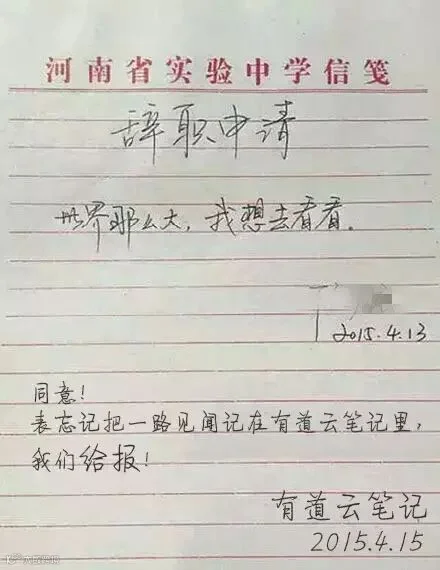 河南省实验中学信笺
辞职申请
世界那么大，我想去看看.
2015.4.13
同意!
表忘记把一路见闻记在有道云笔记里，
我们给报!
有道云笔记
2015.4.15